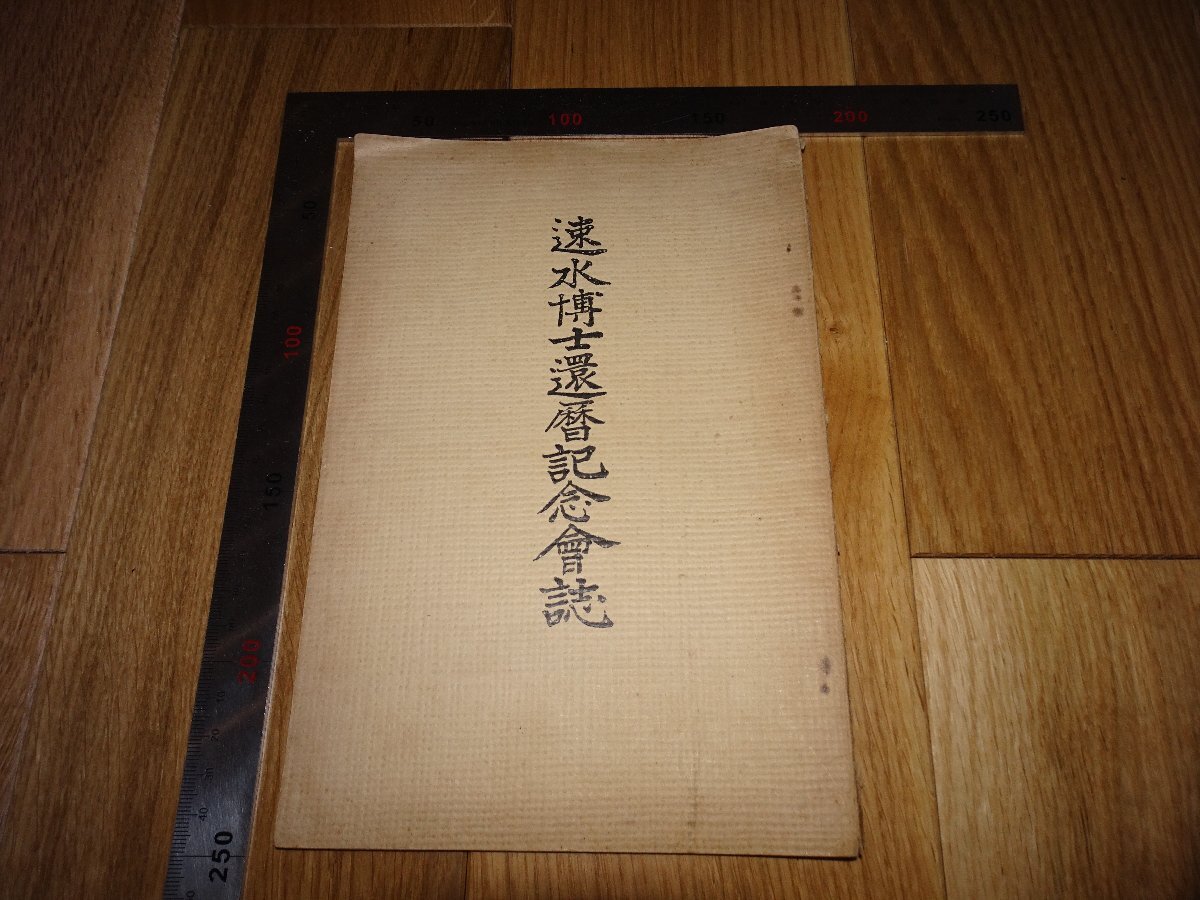 50 100 150 200 250
速水博士還曆記念會誌
50
100
150
200
250